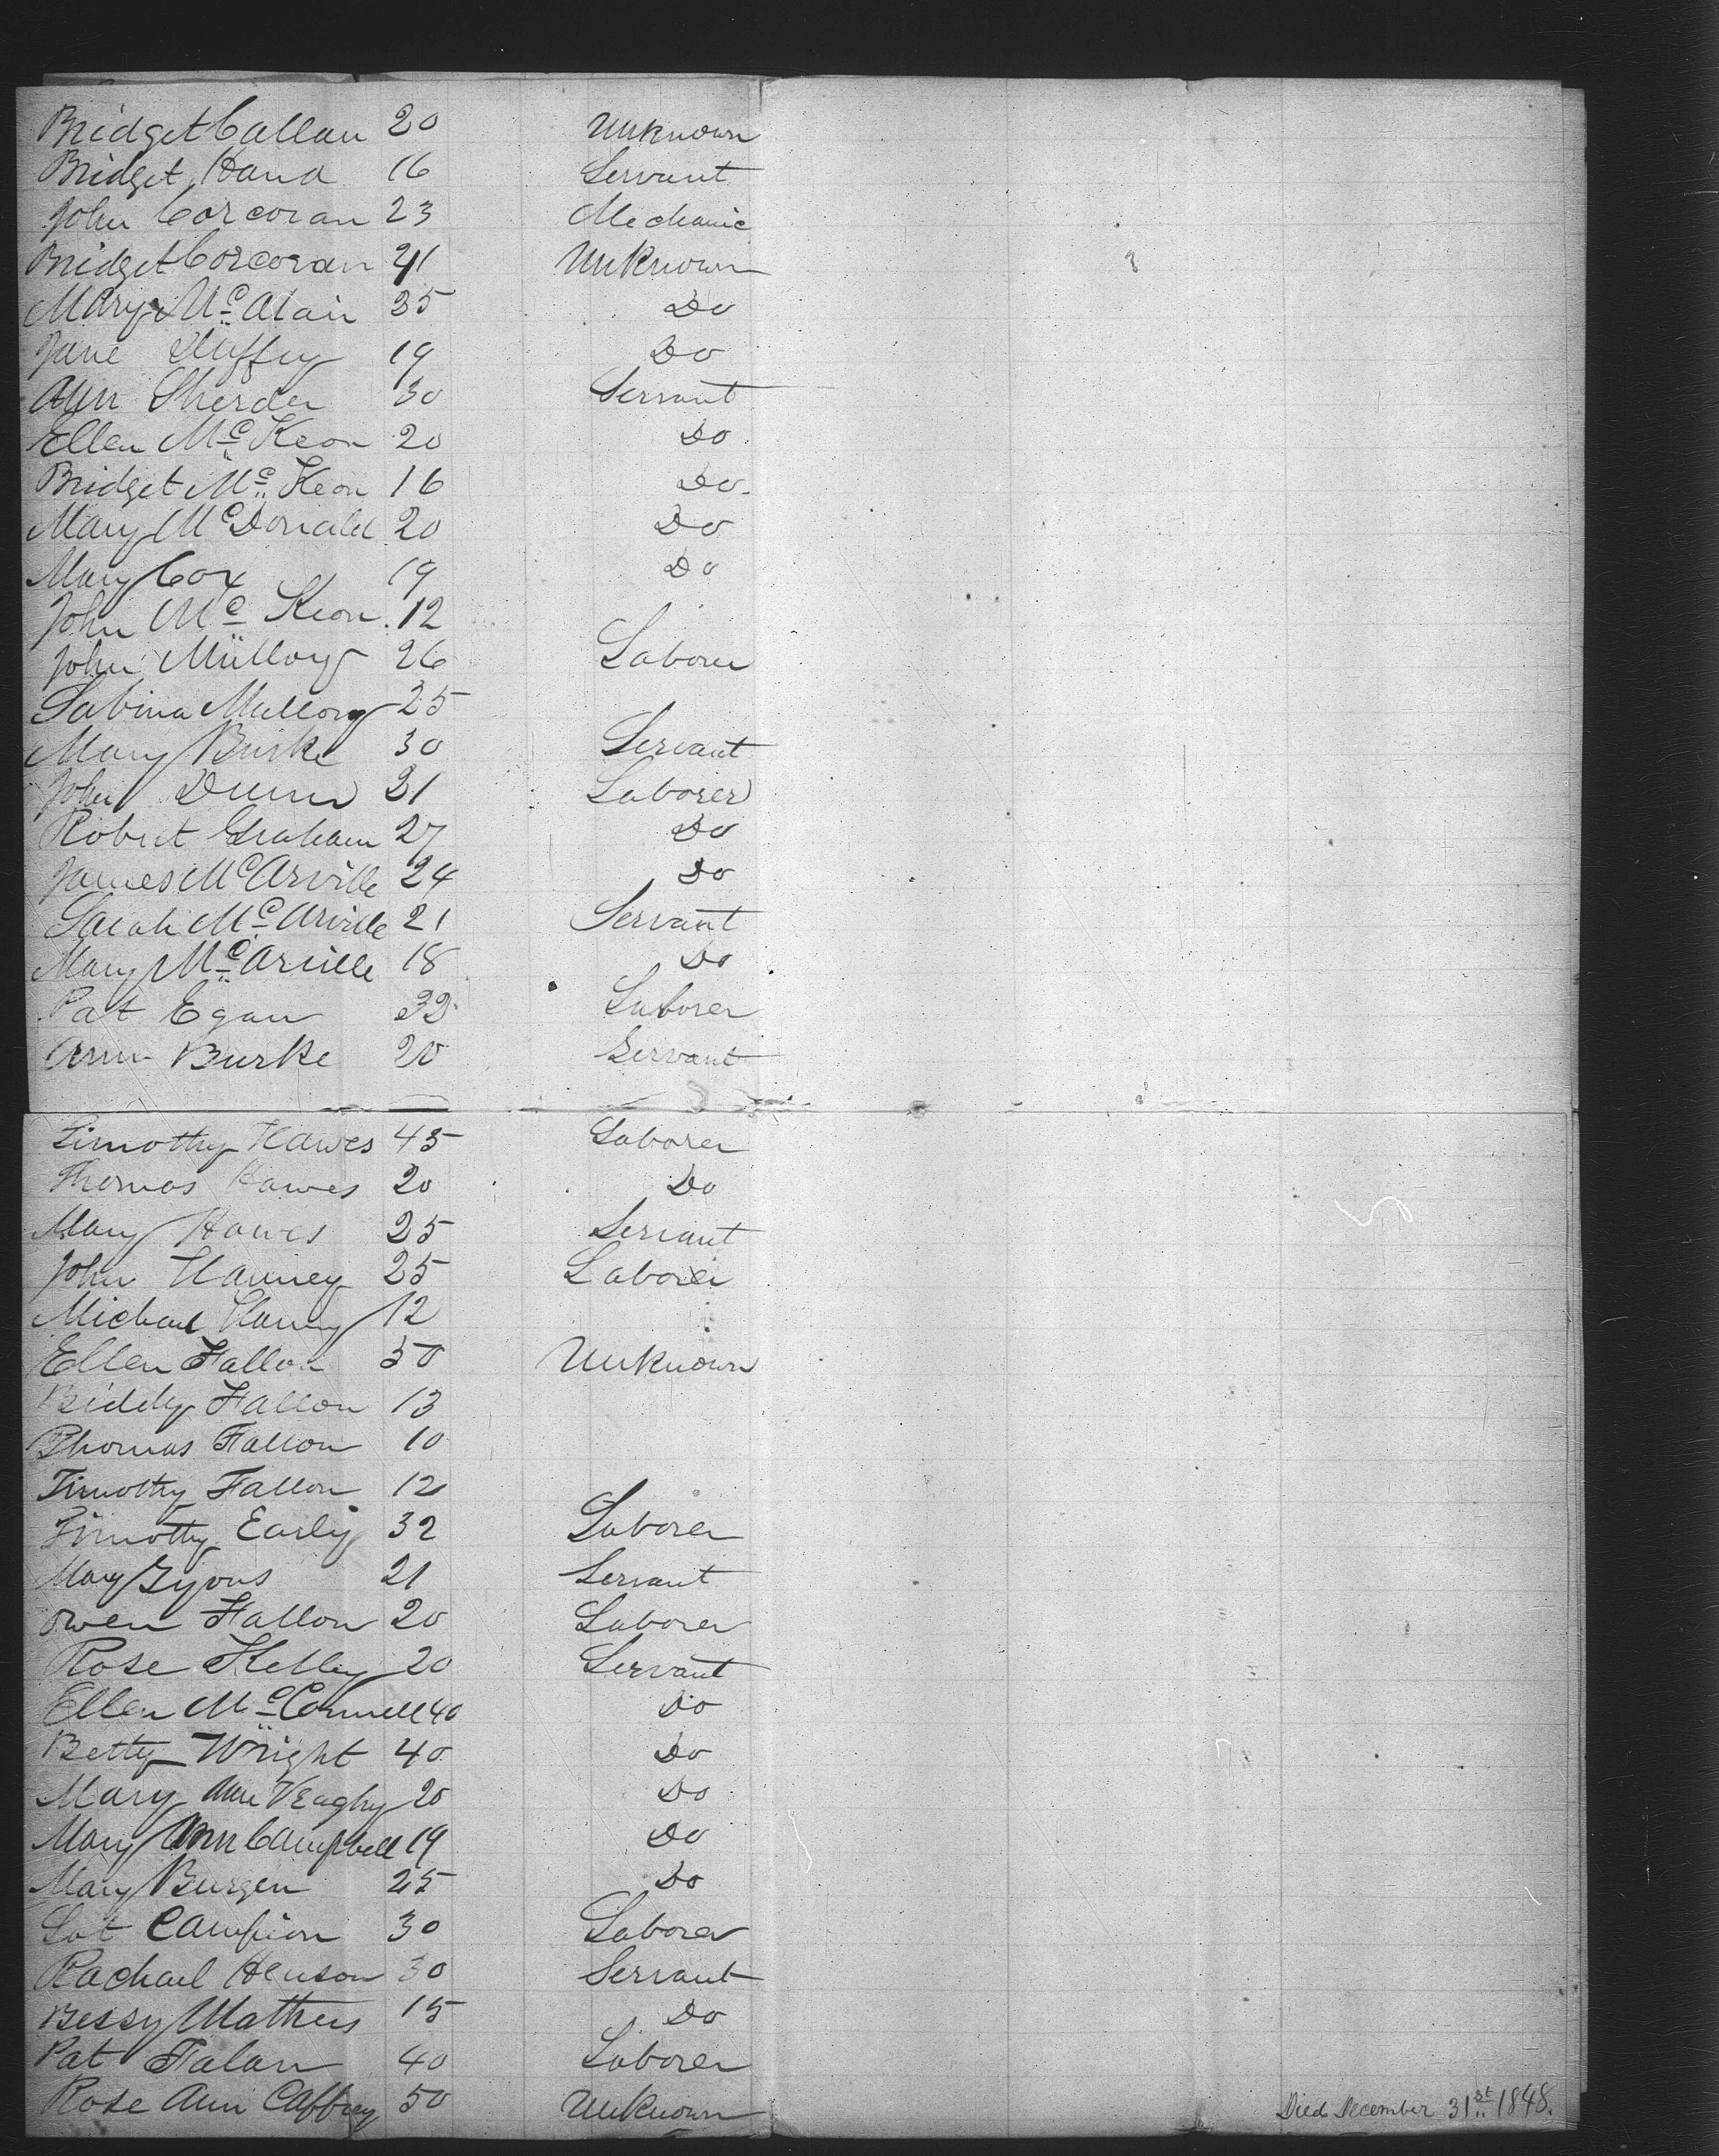 Bridget Callan 20 Unknown
Bridget Hand 16 Servant
John Corcoran 23 Mechanic
Bridget Corcoran 21 Unknown
Mary Mc Alair 35 Do
Jane Duffey 19 Do
Ann Sherden 30 Servant
Ellen Mc Keon 20 Do
Bridget Mc Keon 16 Do
Mary McDonald 20 Do
Mary Cox 19 Do
John Mc Keon 12
John Mulloy 26 Laborer
Sabina Mulloy 25
Mary Burke 30 Servant
John Dunn 21 Laborer
Robert Graham 27 Do
James McArville 24 Do
Sarah Mc Arville 21 Servant
Mary Mc Arville 18 Do
Pat Egan 32 Laborer
Ann Burke 20 Servant
Timothy Hawes 45 Laborer
Thomas Hawes 20 Do
Mary Hawes 25 Servant
John Hanney 25 Laborer
Michael Hanny 12
Ellen Fallon 50 Unknown
Biddy Fallon 13
Thomas Fallon 10
Timothy Fallon 12
Timothy Early 32 Laborer
Mary Lyons 21 Servant
Owen Fallon 20 Laborer
Rose Kelley 20 Servant
Ellen Mc Connell 40 Do
Betty Wright 40 Do
Mary Ann Veaghy 20 Do
Mary Ann Campbell 19 Do
Mary Burgen 25 Do
Lot Campion 30 Laborer
Rachael Henson 30 Servant
Bessy Mathers 15 Do
Pat Falan 40 Laborer
Rose Ann Caffrey 50 Unknown Died December 31st 1848.